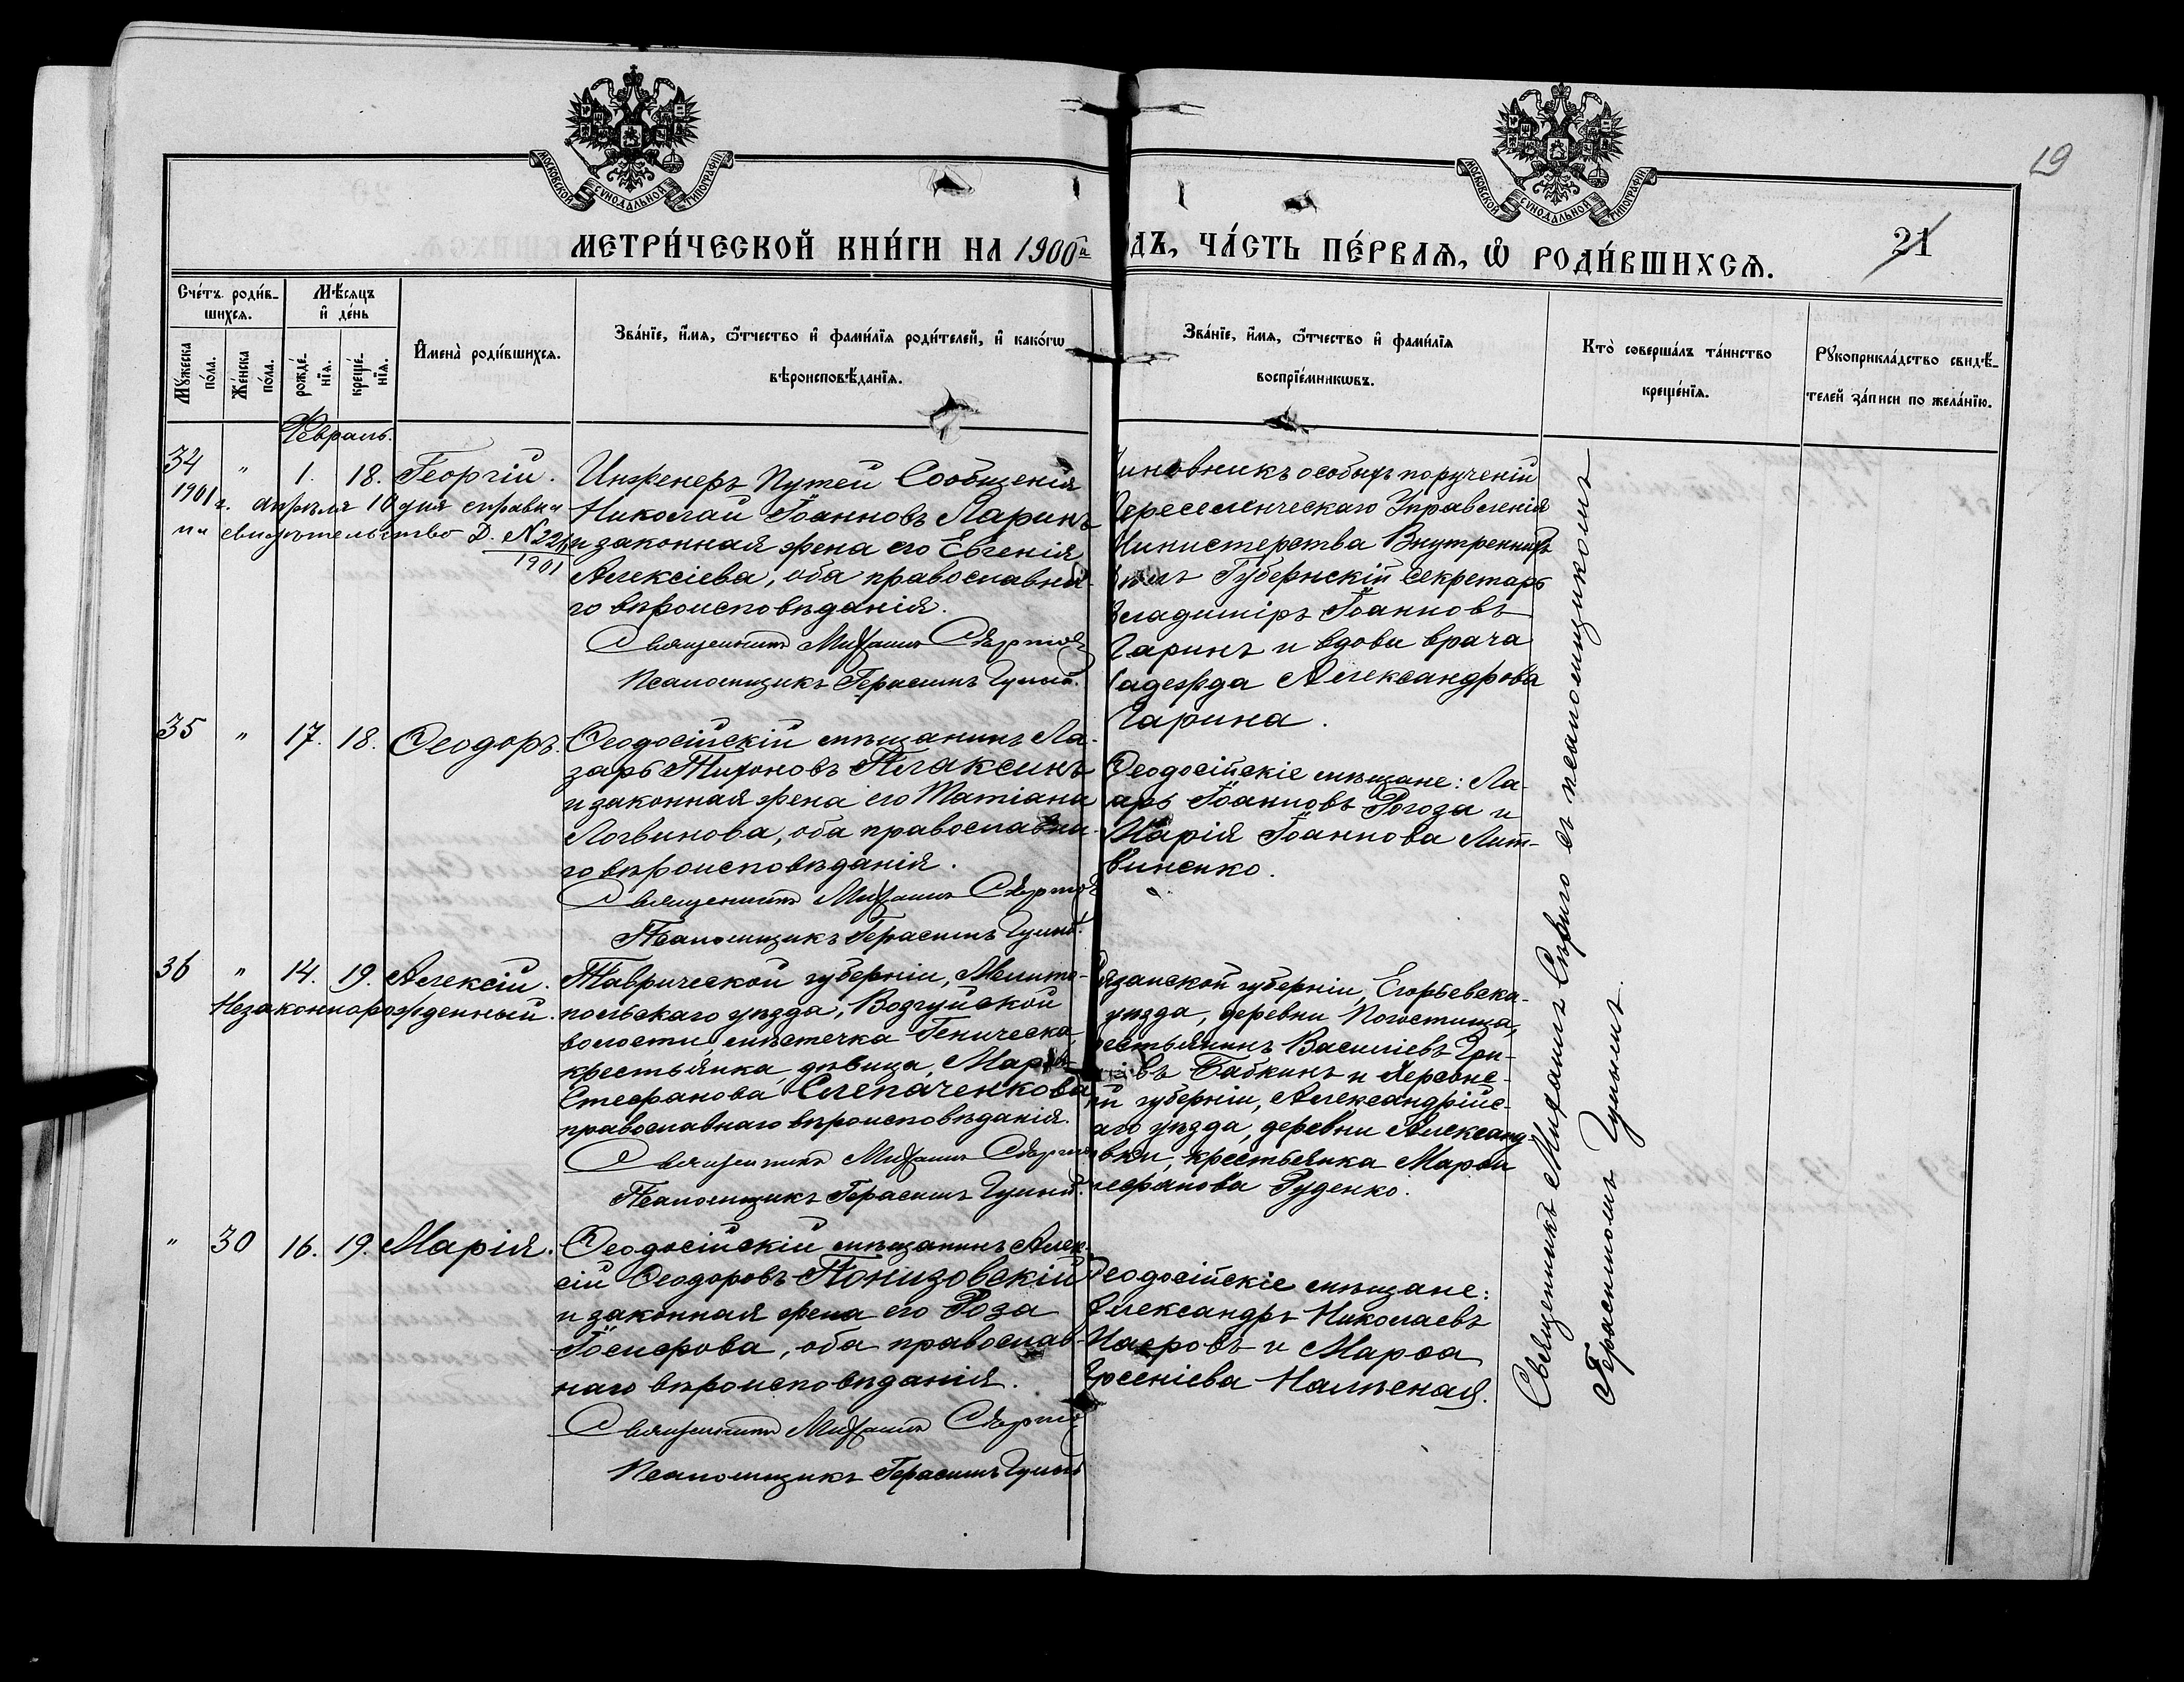 МОСКОВСКОЙ СѴНОДАЛЬНОЙ ТИПОГРАФІИ
МОСКОВСКОЙ СѴНОДАЛЬНОЙ ТИПОГРАФІИ
19
МЕТРИ́ЧЕСКОЙ КНИ́ГИ НА 1900й
ДЪ, ЧА́СТЬ ПЕ́РВАѦ, Ѡ҆ РОДИ́ВШИХСѦ.
21
Сче́тъ роди́в-
шихсѧ.
Мѣ́сѧцъ
и҆ де́нь
Мꙋ́жеска по́ла.
Же́нска по́ла.
рожде́-
нїѧ.
креще́-
нїѧ.
И҆мена̀ роди́вшихсѧ.
Зва́нїе, и҆́мѧ, ѻ҆́тчество и҆ фамилі́ѧ роди́телей, и҆ како́гѡ
вѣроисповѣ́данїѧ.
Зва́нїе, и҆́мѧ, ѻ҆́тчество и҆ фамилі́ѧ
воспрїе́мникѡвъ.
Кто̀ соверша́лъ та́инство
креще́нїѧ.
Рꙋкоприкла́дство свидѣ́-
телей за́писи по жела́нїю.
Февраль.
34 " 1. 18. Георгій.
1901 г. апрѣля 10 дня справка
на свидѣтельство Д. № 224
1901
Инженеръ Путей Сообщенія
Николай Іоанновъ Ларинъ
и законная жена его Евгенія
Алексіева, оба православна-
го вѣроисповѣданія.
Священникъ Михаилъ
Псаломщикъ Герасимъ
иновникъ особыхъ порученій
Переселенческаго Управленія
Министерства Внутреннихъ
Дѣлъ Губернскій Секретарь
Владиміръ Іоанновъ
Ларинъ и вдова врача
Надежда Александрова
Ларина.
35 " 17. 18. Ѳеодоръ.
Ѳеодосійскій мѣщанинъ Ла-
зарь Тихоновъ Плаксинъ
и законная жена его Татіана
Логвинова, оба православна-
го вѣроисповѣданія.
Священникъ Михаилъ
Псаломщикъ Герасимъ
Ѳеодосійскіе мѣщане: Ла-
арь Іоанновъ Рогоза и
Марія Іоаннова Лит-
виненко.
36 " 14. 19. Алексій.
Незаконнорожденный.
Таврической губерніи, Мелито-
польскаго уѣзда,
волости, мѣстечка Геническа,
крестьянка дѣвица,
Стефанова Слепаченкова
православнаго вѣроисповѣданія.
Священникъ Михаилъ
Псаломщикъ Герасимъ
язанской губерніи, Егорьевска-
уѣзда, деревни Погостища,
рестьянинъ Василіевъ Гри-
въ Бабкинъ и Херсонс-
ой губерніи, Александрійс-
аго уѣзда, деревни Александ-
вки, крестьянка Марѳа
тефанова Руденко.
" 30 16. 19. Марія.
Ѳеодосійскій мѣщанинъ Алек-
сій Ѳеодоровъ Понизовскій
и законная жена его Роза
Іосифова, оба православ-
наго вѣроисповѣданія.
Священникъ Михаилъ
Псаломщикъ Герасимъ
Ѳеодосійскіе мѣщане:
Александръ Николаевъ
и Марѳа
Арсеніева
Священникъ Михаилъ съ псаломщикомъ
Герасимомъ